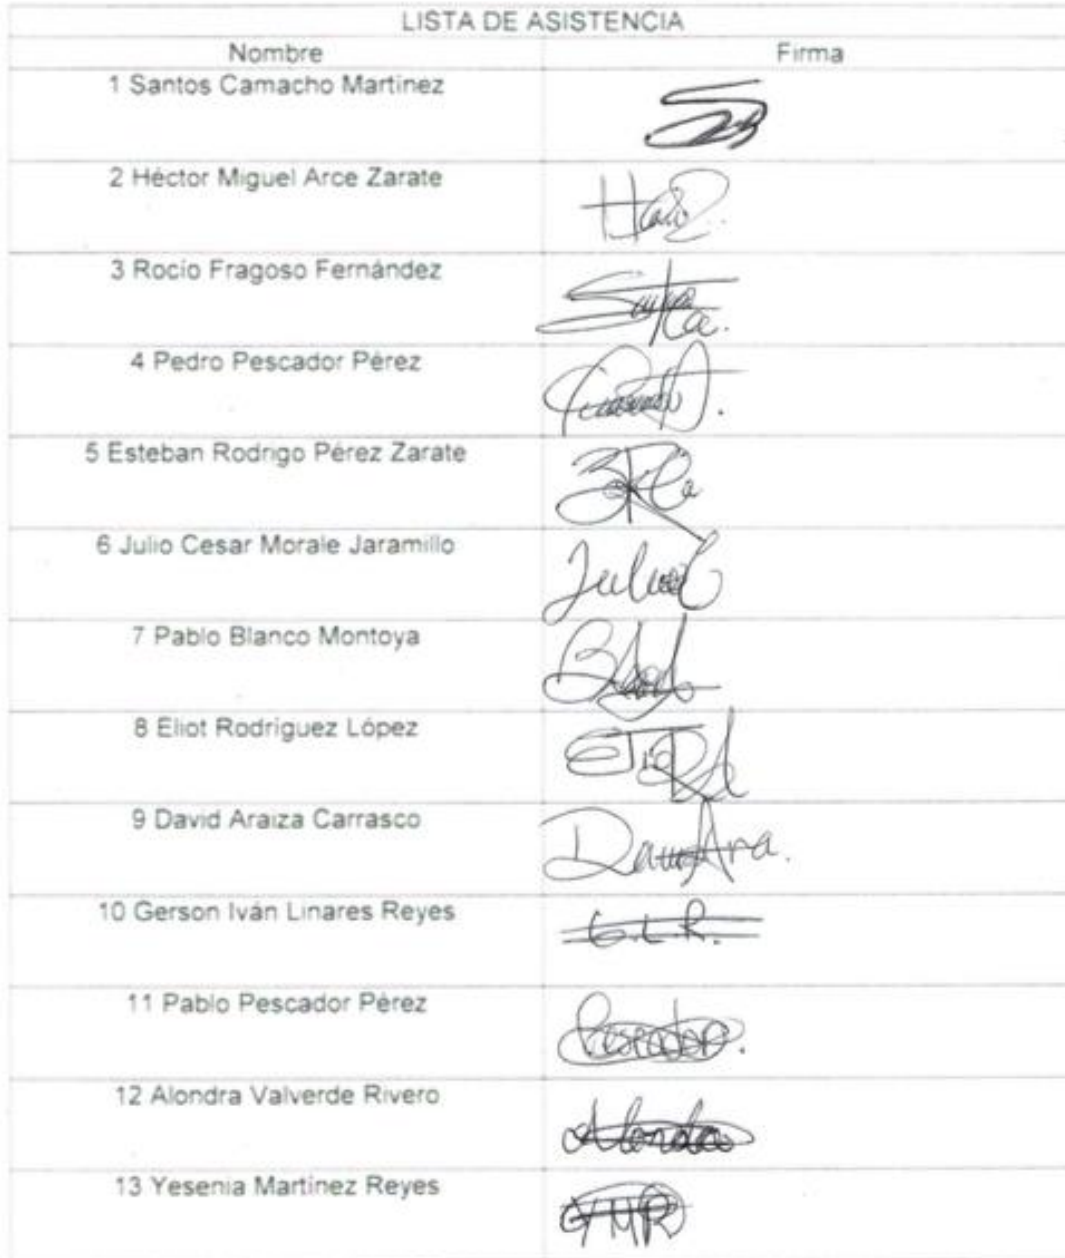 LISTA DE ASISTENCIA
Nombre Firma
1 Santos Camacho Martinez
2 Héctor Miguel Arce Zarate
3 Rocío Fragoso Fernández
4 Pedro Pescador Pérez
5 Esteban Rodrigo Pérez Zarate
6 Julio Cesar Morale Jaramillo
7 Pablo Blanco Montoya
8 Eliot Rodríguez López
9 David Araiza Carrasco
10 Gerson Iván Linares Reyes G.L.R.
11 Pablo Pescador Pérez
12 Alondra Valverde Rivero Alondra
13 Yesenia Martínez Reyes YMR